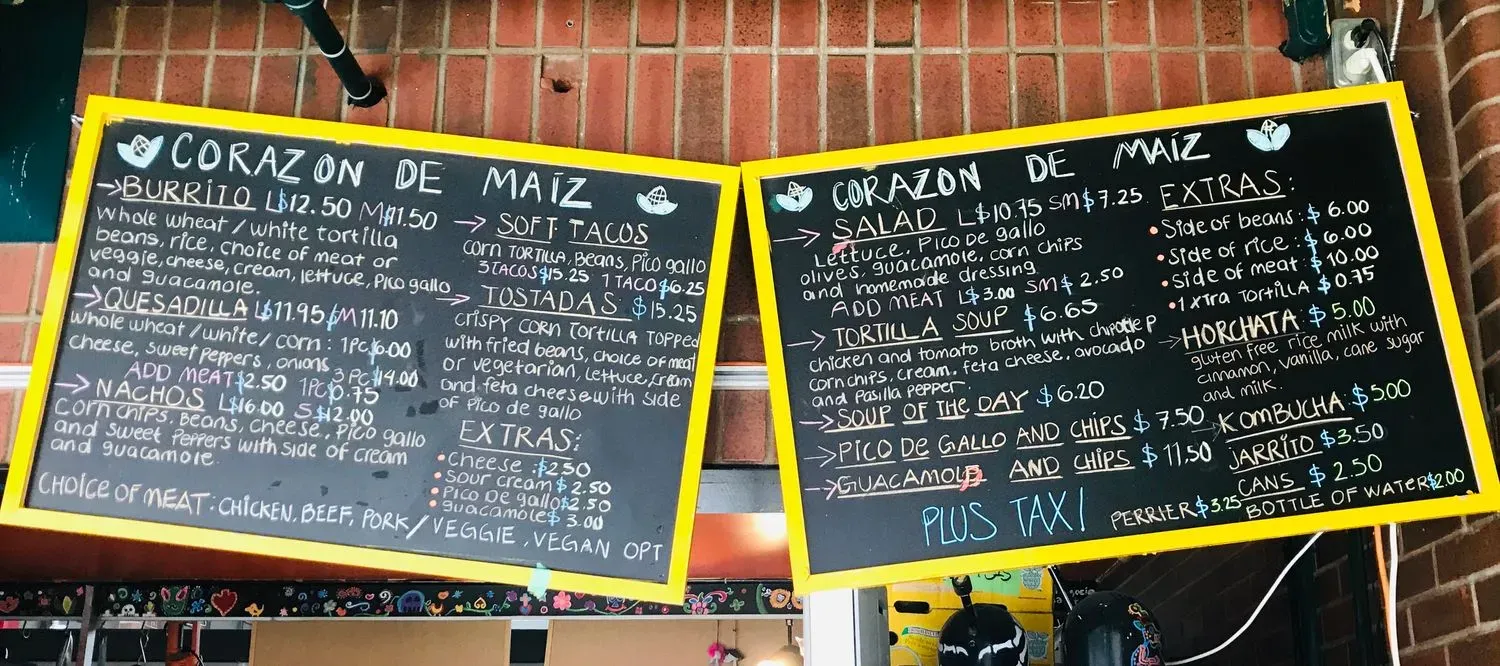 CORAZON DE MAÍZ
→BURRITO L$12.50 M$11.50
Whole wheat / white tortilla
beans, rice, choice of meat or
veggie, cheese, cream, lettuce, Pico gallo
and guacamole.
→QUESADILLA L$11.95 M 11.10
whole wheat / white / corn : 1Pc $6.00
cheese, sweet peppers, onions 3Pc $14.00
ADD MEAT $2.50 1PC $0.75
→NACHOS L$16.00 S $12.00
Corn chips, Beans, cheese, Pico gallo
and sweet Peppers with side of cream
and guacamole.
→ SOFT TACOS
corn TORTILLA, Beans, Pico gallo
3TACOS $15.25 1 TACO $6.25
→ TOSTADAS $15.25
CRISPY CORN TORTILLA TOPPED
with fried beans, choice of meat
or vegetarian, Lettuce, cream
and feta cheese with side
of Pico de gallo
EXTRAS:
•Cheese :$2.50
•Sour cream $ 2.50
•Pico De gallo $2.50
•guacamole $ 3.00
CHOICE OF MEAT : CHICKEN. BEEF, PORK / VEGGIE , VEGAN OPT
CORAZON DE MAÍZ
→ SALAD L$10.75 SM $7.25
Lettuce, Pico de gallo
olives, guacamole, corn chips
and homemade dressing
ADD MEAT L$3.00 SM $ 2.50
→ TORTILLA SOUP $6.65
chicken and tomato broth with chipotle P
corn chips, cream, feta cheese, avocado
and Pasilla pepper.
→SOUP OF THE DAY $6.20
→PICO DE GALLO AND CHIPS $ 7.50
→GUACAMOLE AND CHIPS $ 11.50
PLUS TAX!
EXTRAS:
•Side of beans: $ 6.00
•Side of rice : $ 6.00
•Side of meat: $ 10.00
•1 XTra TORTILLA $ 0.75
→HORCHATA: $ 5.00
gluten free rice milk with
cinnamon, vanilla, cane sugar
and milk.
→KOMBUCHA: $5.00
JARRITO $3.50
CANS $ 2.50
PERRIER $3.25 BOTTLE OF WATER $2.00